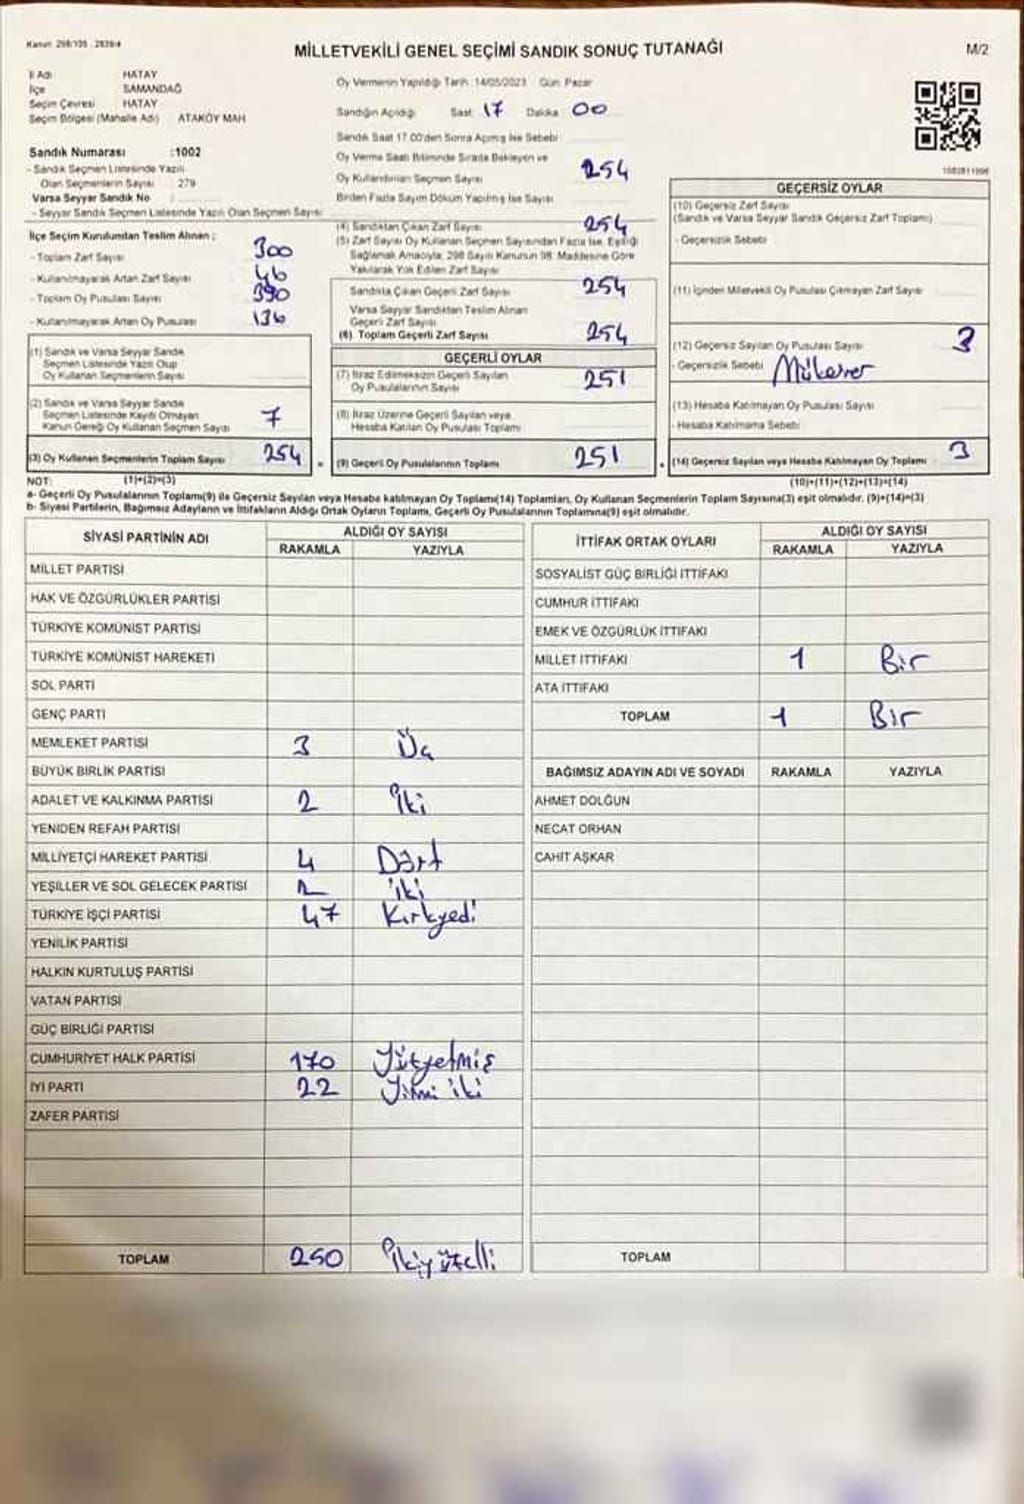 Kanun: 298/105 - 2839/4
MİLLETVEKİLİ GENEL SEÇİMİ SANDIK SONUÇ TUTANAĞI
M/2
İl Adı HATAY
İlçe SAMANDAĞ
Seçim Çevresi HATAY
Seçim Bölgesi (Mahalle Adı) ATAKÖY MAH
Sandık Numarası :1002
- Sandık Seçmen Listesinde Yazılı
Olan Seçmenlerin Sayısı : 279
Varsa Seyyar Sandık No :
- Seyyar Sandık Seçmen Listesinde Yazılı Olan Seçmen Sayısı:
İlçe Seçim Kurulundan Teslim Alınan :
- Toplam Zarf Sayısı 300
- Kullanılmayarak Artan Zarf Sayısı 46
- Toplam Oy Pusulası Sayısı 390
- Kullanılmayarak Artan Oy Pusulası 136
(1) Sandık ve Varsa Seyyar Sandık
Seçmen Listesinde Yazılı Olup
Oy Kullanan Seçmenlerin Sayısı
(2) Sandık ve Varsa Seyyar Sandık
Seçmen Listesinde Kaydı Olmayan
Kanun Gereği Oy Kullanan Seçmen Sayısı 7
(3) Oy Kullanan Seçmenlerin Toplam Sayısı 254
Oy Vermenin Yapıldığı Tarih :14/05/2023 Gün: Pazar
Sandığın Açıldığı Saat: 17 Dakika 00
Sandık Saat 17.00'den Sonra Açılmış İse Sebebi:
Oy Verme Saati Bitiminde Sırada Bekleyen ve
Oy Kullandırılan Seçmen Sayısı 254
Birden Fazla Sayım Döküm Yapılmış İse Sayısı
(4) Sandıktan Çıkan Zarf Sayısı 254
(5) Zarf Sayısı Oy Kullanan Seçmen Sayısından Fazla İse, Eşitliği
Sağlamak Amacıyla, 298 Sayılı Kanunun 98. Maddesine Göre
Yakılarak Yok Edilen Zarf Sayısı
Sandıkta Çıkan Geçerli Zarf Sayısı 254
Varsa Seyyar Sandıktan Teslim Alınan
Geçerli Zarf Sayısı
(6) Toplam Geçerli Zarf Sayısı 254
GEÇERLİ OYLAR
(7) İtiraz Edilmeksizin Geçerli Sayılan
Oy Pusulalarının Sayısı 251
(8) İtiraz Üzerine Geçerli Sayılan veya
Hesaba Katılan Oy Pusulası Toplamı
= (9) Geçerli Oy Pusulalarının Toplamı 251
1083811006
GEÇERSİZ OYLAR
(10) Geçersiz Zarf Sayısı
(Sandık ve Varsa Seyyar Sandık Geçersiz Zarf Toplamı)
- Geçersizlik Sebebi
(11) İçinden Milletvekili Oy Pusulası Çıkmayan Zarf Sayısı
(12) Geçersiz Sayılan Oy Pusulası Sayısı 3
- Geçersizlik Sebebi Mükerrer
(13) Hesaba Katılmayan Oy Pusulası Sayısı
- Hesaba Katılmama Sebebi
+ (14) Geçersiz Sayılan veya Hesaba Katılmayan Oy Toplamı 3
NOT: (1)+(2)=(3)
(10)+(11)+(12)+(13)=(14)
a- Geçerli Oy Pusulalarının Toplamı(9) ile Geçersiz Sayılan veya Hesaba katılmayan Oy Toplamı(14) Toplamları, Oy Kullanan Seçmenlerin Toplam Sayısına(3) eşit olmalıdır. (9)+(14)=(3)
b- Siyasi Partilerin, Bağımsız Adayların ve İttifakların Aldığı Ortak Oyların Toplamı, Geçerli Oy Pusulalarının Toplamına(9) eşit olmalıdır.
SİYASİ PARTİNİN ADI
ALDIĞI OY SAYISI
RAKAMLA YAZIYLA
MİLLET PARTİSİ
HAK VE ÖZGÜRLÜKLER PARTİSİ
TÜRKİYE KOMÜNİST PARTİSİ
TÜRKİYE KOMÜNİST HAREKETİ
SOL PARTİ
GENÇ PARTİ
MEMLEKET PARTİSİ 3 Üç
BÜYÜK BİRLİK PARTİSİ
ADALET VE KALKINMA PARTİSİ 2 İki
YENİDEN REFAH PARTİSİ
MİLLİYETÇİ HAREKET PARTİSİ 4 Dört
YEŞİLLER VE SOL GELECEK PARTİSİ 2 iki
TÜRKİYE İŞÇİ PARTİSİ 47 Kırkyedi
YENİLİK PARTİSİ
HALKIN KURTULUŞ PARTİSİ
VATAN PARTİSİ
GÜÇ BİRLİĞİ PARTİSİ
CUMHURİYET HALK PARTİSİ 170 Yüzyetmiş
İYİ PARTİ 22 Yirmi iki
ZAFER PARTİSİ
TOPLAM 250 İkiyüzelli
İTTİFAK ORTAK OYLARI
ALDIĞI OY SAYISI
RAKAMLA YAZIYLA
SOSYALİST GÜÇ BİRLİĞİ İTTİFAKI
CUMHUR İTTİFAKI
EMEK VE ÖZGÜRLÜK İTTİFAKI
MİLLET İTTİFAKI 1 Bir
ATA İTTİFAKI
TOPLAM 1 Bir
BAĞIMSIZ ADAYIN ADI VE SOYADI RAKAMLA YAZIYLA
AHMET DOLĞUN
NECAT ORHAN
CAHİT AŞKAR
TOPLAM